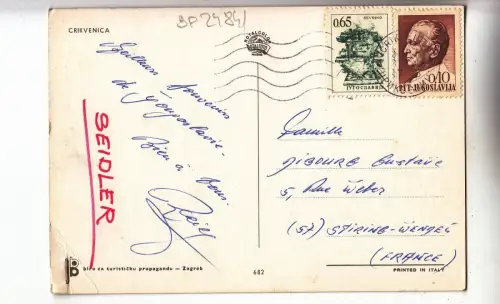 CRIKVENICA
BP 2484/
0.65
JUGOSLAVIJA
0,10
PTT-JUGOSLAVIJA
souvenir
de Yougoslavie
Bien à vous
SEIDLER
Famille
DIBOURG Gustave
5, Rue Weber
(57) STIRING-WENDEL
(FRANCE)
biro za turističku propagandu – Zagreb
682
PRINTED IN ITALY